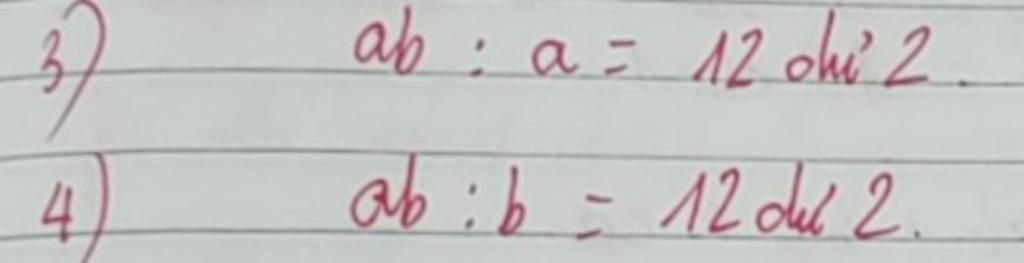 3) ab : a = 12 dư 2.
4) ab : b = 12 dư 2.